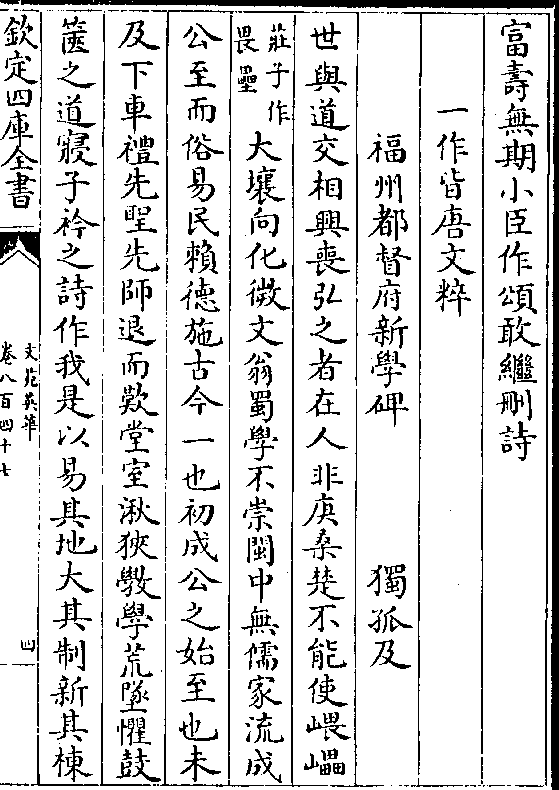 富壽無期小臣作頌敢繼刪詩
一作皆唐文粹
福州都督府新學碑　獨孤及
世與道交相興喪弘之者在人非庚桑楚不能使嵔㠥
莊子作畏壘大壤向化微文翁蜀學不崇閩中無儒家流成
公至而俗易民賴德施古今一也初成公之始至也未
及下車禮先聖先師退而歎堂室湫狹斆學荒墜懼鼓
篋之道寢子衿之詩作我是以易其地大其制新其棟
欽定四庫全書
文苑英華
卷八百四十七
四